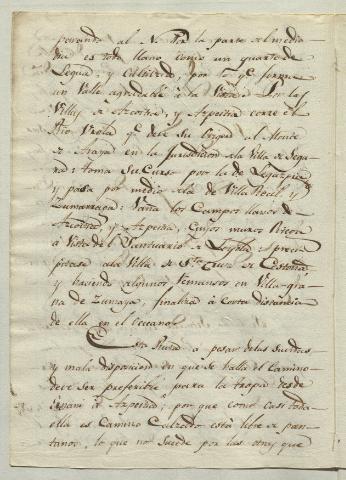 perando al N. Por la parte del medio
dia es todo llano como un quarto de
Legua, y Cultibado, por lo q.e forma
un Valle agradable à la Vista. Por las
Villas de Azcoitia, y Azpeitia corre el
Rio Urola q.e deve su origen al Monte
de Araya en la Jurisdicion de la Villa de Segu
ra: toma su Curso por la de Legazpia
y pasa por medio de la de Villa Real y
Zumarraga: Vaña los Campos llanos de
Azcoitia, y Azpeitia, Cuyos muros
à Vista del Santuario de Loyola
à la Villa de S.ta Cruz de Cestona
y haciendo algunos remansos en Villa-gra-
na de Zumaya, finaliza à Corta distancia
de ella en el Occeano.
Esta Ruta à pesar de las
y mala disposicion en que se halla el Camino
deve ser preferible para la tropa desde
Ernani à Azpeitia; por que como casi toda
ella es Camino Calzado està libre de pan-
tanos, lo que no sucede por las otras que